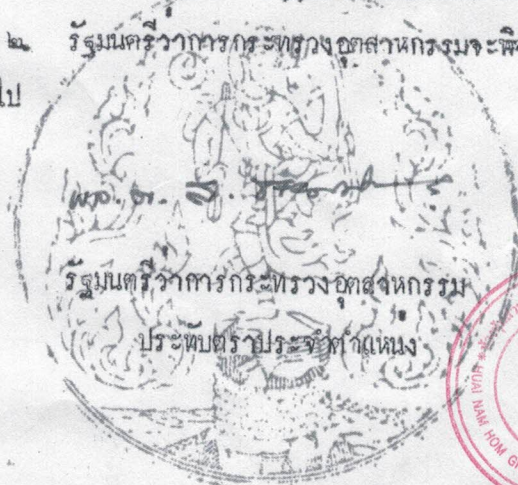 ๒ รัฐมนตรีว่าการกระทรวงอุตสาหกรรมจะพิ
ไป
พล.ต.
รัฐมนตรีว่าการกระทรวงอุตสาหกรรม
ประทับตราประจำตำแหน่ง
HUAI NAM HOM